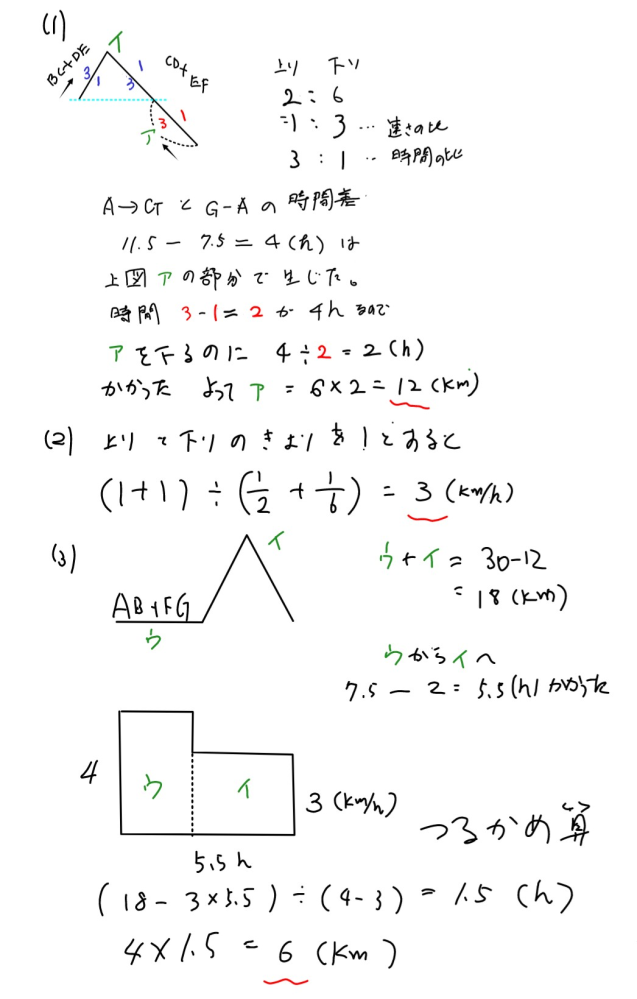 (1)
イ
BC+DE
CD+EF
3 1
1
3
3 1
ア
上り 下り
2 : 6
=1 : 3 … 速さの比
3 : 1 … 時間の比
A→G と G-A の 時間差
11.5 - 7.5 = 4 (h) は
上図 ア の部分で 生じた。
時間 3-1=2 が 4h なので
ア を下るのに 4÷2 = 2 (h)
かかった よって ア = 6×2 = 12 (km)
(2) 上りと下りのきょりを1とすると
(1+1) ÷ (1/2 + 1/6) = 3 (km/h)
(3)
イ
AB+FG
ウ
ウ+イ = 30-12
= 18 (km)
ウからイへ
7.5 - 2 = 5.5 (h) かかった
4
ウ イ
3 (km/h)
5.5 h
つるかめ算
(18 - 3×5.5) ÷ (4-3) = 1.5 (h)
4×1.5 = 6 (km)